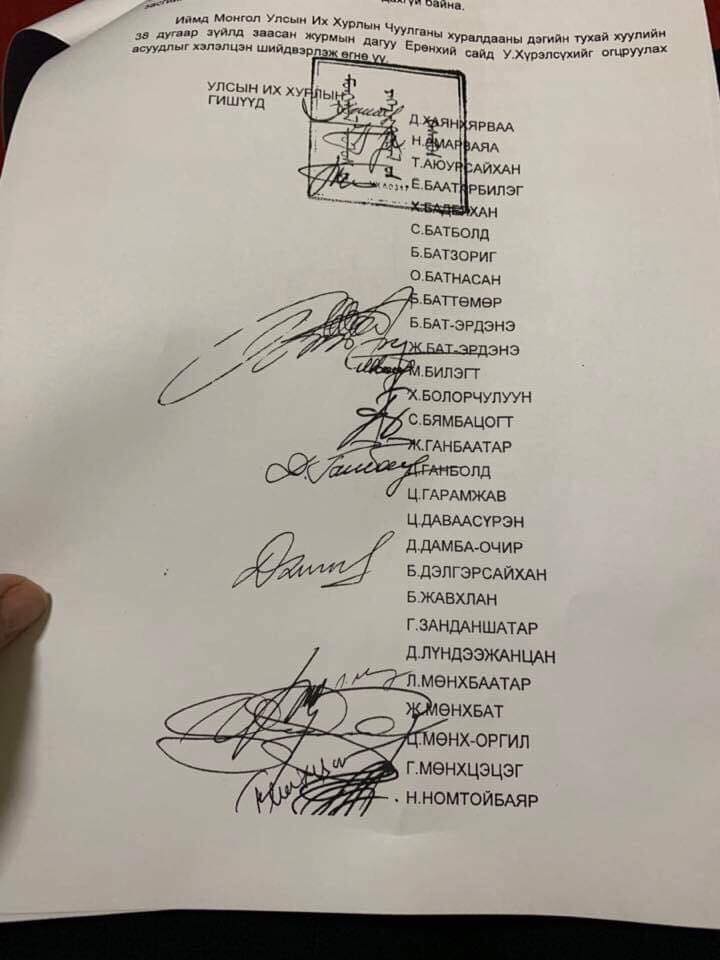 дахгүй байна.
Иймд Монгол Улсын Их Хурлын Чуулганы хуралдааны дэгийн тухай хуулийн
38 дугаар зүйлд заасан журмын дагуу Ерөнхий сайд У.Хүрэлсүхийг огцруулах
асуудлыг хэлэлцэн шийдвэрлэж өгнө үү.
УЛСЫН ИХ ХУРЛЫН
ГИШҮҮД
Д.ХАЯНХЯРВАА
Н.АМАРЗАЯА
Т.АЮУРСАЙХАН
Ё.БААТАРБИЛЭГ
Х.БАДЕЛХАН
С.БАТБОЛД
Б.БАТЗОРИГ
О.БАТНАСАН
Б.БАТТӨМӨР
Б.БАТ-ЭРДЭНЭ
Ж.БАТ-ЭРДЭНЭ
М.БИЛЭГТ
Х.БОЛОРЧУЛУУН
С.БЯМБАЦОГТ
Ж.ГАНБААТАР
Д.ГАНБОЛД
Ц.ГАРАМЖАВ
Ц.ДАВААСҮРЭН
Д.ДАМБА-ОЧИР
Б.ДЭЛГЭРСАЙХАН
Б.ЖАВХЛАН
Г.ЗАНДАНШАТАР
Д.ЛҮНДЭЭЖАНЦАН
Л.МӨНХБААТАР
Ж.МӨНХБАТ
Ц.МӨНХ-ОРГИЛ
Г.МӨНХЦЭЦЭГ
Н.НОМТОЙБАЯР